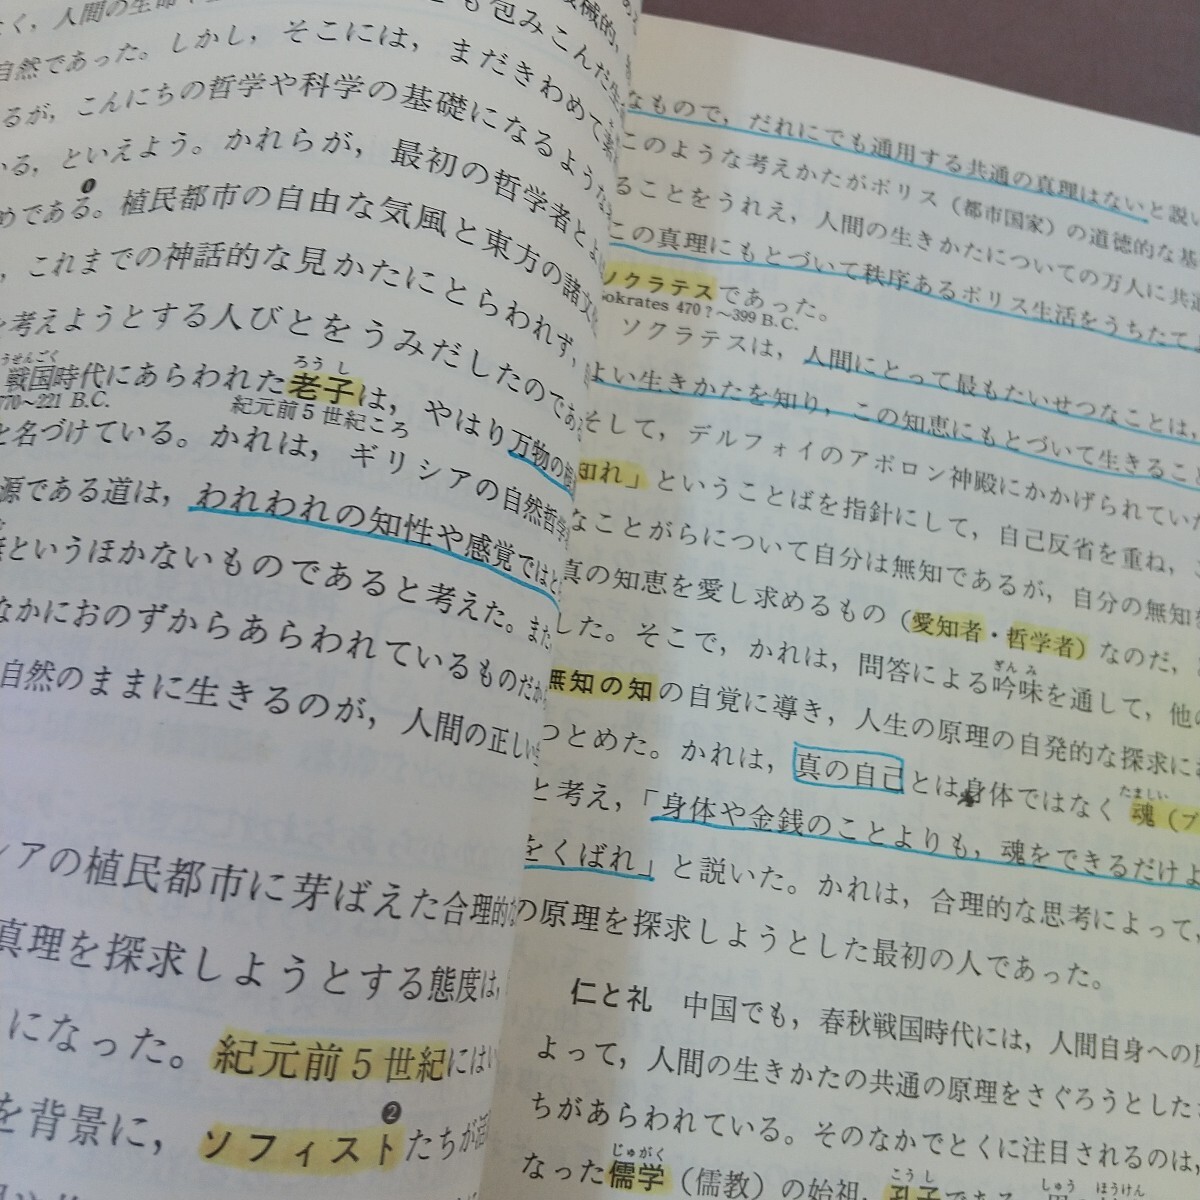 く，人間の生命や
も包みこんだ生
自然であった。しかし，そこには，まだきわめて素
るが，こんにちの哲学や科学の基礎になるような
いる，といえよう。かれらが，最初の哲学者とよ
めである。植民都市の自由な気風と東方の諸文
，これまでの神話的な見かたにとらわれず，
を考えようとする人びとをうみだしたのであ
戦国時代にあらわれた老子は，やはり万物の根
770〜221 B.C.
紀元前5世紀ころ
と名づけている。かれは，ギリシアの自然哲学
源である道は，われわれの知性や感覚ではと
というほかないものであると考えた。また
なかにおのずからあらわれているものだから
自然のままに生きるのが，人間の正しい生
シアの植民都市に芽ばえた合理的な
真理を探求しようとする態度は，
になった。紀元前5世紀にはい
を背景に，ソフィストたちが活
❷
なもので，だれにでも通用する共通の真理はないと説い
このような考えかたがポリス（都市国家）の道徳的な基
ることをうれえ，人間の生きかたについての万人に共通
この真理にもとづいて秩序あるポリス生活をうちたてよ
ソクラテスであった。
Sokrates 470？〜399 B.C.
ソクラテスは，人間にとって最もたいせつなことは，
よい生きかたを知り，この知恵にもとづいて生きること
そして，デルフォイのアポロン神殿にかかげられてい
知れ」ということばを指針にして，自己反省を重ね，
なことがらについて自分は無知であるが，自分の無知を
真の知恵を愛し求めるもの（愛知者・哲学者）なのだ，
した。そこで，かれは，問答による吟味を通して，他の
ぎんみ
無知の知の自覚に導き，人生の原理の自発的な探求に
つとめた。かれは，真の自己とは身体ではなく魂（プ
たましい
と考え，「身体や金銭のことよりも，魂をできるだけよ
をくばれ」と説いた。かれは，合理的な思考によって，
の原理を探求しようとした最初の人であった。
仁と礼　中国でも，春秋戦国時代には，人間自身への
よって，人間の生きかたの共通の原理をさぐろうとした
ちがあらわれている。そのなかでとくに注目されるのは，
じゅがく
なった儒学（儒教）の始祖，孔子である
こうし
しゅう
ほうけん